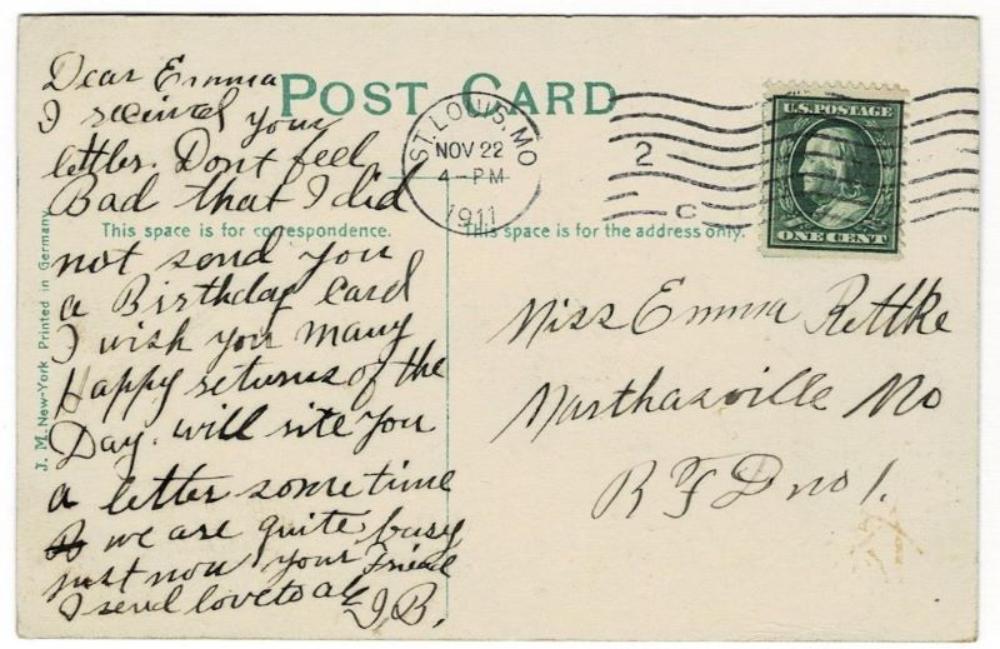 POST CARD
Dear Emma
I received your
letter. Dont feel
Bad that I did
This space is for correspondence.
not send you
a Birthday Card
I wish you many
Happy returns of the
Day. will rite you
a letter sometime
we are quite busy
just now your Friend
I send love to all
J. M. New-York Printed in Germany
ST. LOUIS, MO
NOV 22
4-PM
1911
2
C
U.S. POSTAGE
ONE CENT
This space is for the address only.
Miss Emma Rettke
Marthasville Mo
R F D no 1.